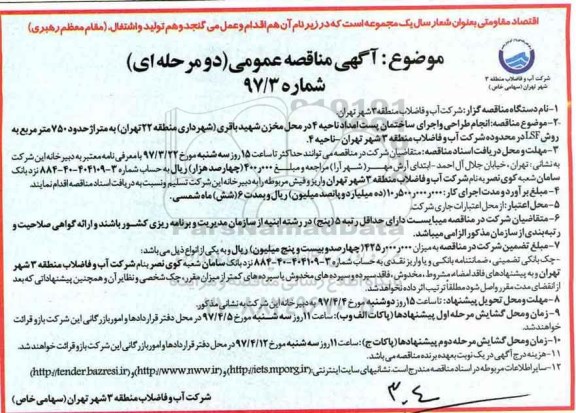 اقتصاد مقاومتی بعنوان شعار سال یک مجموعه است که در زیر نام آن هم اقدام و عمل می گنجد و هم تولید و اشتغال. (مقام معظم رهبری)
موضوع: آگهی مناقصه عمومی (دو مرحله ای)
شماره ۹۷/۳
شرکت آب و فاضلاب منطقه ۳
شهر تهران (سهامی خاص)
۱- نام دستگاه مناقصه گزار: شرکت آب و فاضلاب منطقه ۳ شهر تهران.
۲- موضوع مناقصه: انجام طراحی و اجرای ساختمان پست امداد ناحیه ۴ در محل مخزن شهید باقری (شهرداری منطقه ۲۲ تهران) به متراژ حدود ۷۵۰ متر مربع به
روش LSF در محدوده شرکت آب و فاضلاب منطقه ۳ شهر تهران - ناحیه ۴.
۳- مهلت و محل دریافت اسناد مناقصه: متقاضیان شرکت در مناقصه می توانند حداکثر تا ساعت ۱۵ روز سه شنبه مورخ ۹۷/۳/۲۲ با معرفی نامه معتبر به دبیرخانه این شرکت
به نشانی: تهران، خیابان جلال آل احمد - ابتدای آرش مهر (شهر آرا) مراجعه و مبلغ ۴۰۰٫۰۰۰ (چهارصد هزار) ریال به حساب شماره ۳-۴۰۴۱۰۹-۴۰-۸۸۴ نزد بانک
سامان شعبه کوی نصر به نام شرکت آب و فاضلاب منطقه ۳ شهر تهران واریز و فیش مربوطه را به دبیرخانه این شرکت تسلیم و نسبت به دریافت اسناد مناقصه اقدام نمایند
۴- مبلغ برآورد و مدت اجرای کار: ۱۰٫۵۰۰٫۰۰۰٫۰۰۰ (ده میلیارد و پانصد میلیون) ریال و بمدت ۶ (شش) ماه شمسی.
۵- محل اعتبار: از محل اعتبارات جاری شرکت
۶- متقاضیان شرکت در مناقصه میبایست دارای حداقل رتبه ۵ (پنج) در رشته ابنیه از سازمان مدیریت و برنامه ریزی کشور باشند و ارائه گواهی صلاحیت و
رتبه بندی از سازمان مذکور الزامی میباشد.
۷- مبلغ تضمین شرکت در مناقصه به میزان ۴۲۵٫۰۰۰٫۰۰۰ (چهارصد و بیست و پنج میلیون) ریال و به یکی از انواع ذیل می باشد:
- چک بانکی تضمینی، ضمانتنامه بانکی و یا واریز نقدی به حساب شماره ۳-۴۰۴۱۰۹-۴۰-۸۸۴ نزد بانک سامان شعبه کوی نصر بنام شرکت آب و فاضلاب منطقه ۳ شهر
تهران و به پیشنهادهای فاقد امضاء مشروط، مخدوش، فاقد سپرده و سپرده های مخدوش یا سپرده های کمتر از میزان مقرر، چک شخصی و نظایر آن و همچنین پیشنهاداتی که بعد
از انقضای مدت مقرر واصل شود مطلقا ترتیب اثر داده نخواهد شد.
۸- مهلت و محل تحویل پیشنهاد: تا ساعت ۱۵ روز دوشنبه مورخ ۹۷/۴/۴ به دبیرخانه این شرکت به نشانی مذکور.
۹- زمان و محل گشایش مرحله اول پیشنهادها (پاکات الف و ب): ساعت ۱۱ روز سه شنبه مورخ ۹۷/۴/۵ در محل دفتر قراردادها و امور بازرگانی این شرکت باز و قرائت
خواهند شد.
۱۰- زمان و محل گشایش مرحله دوم پیشنهادها (پاکات ج): ساعت ۱۱ روز سه شنبه مورخ ۹۷/۴/۱۲ در محل دفتر قراردادها و امور بازرگانی این شرکت باز و قرائت خواهند شد.
۱۱- هزینه درج آگهی در یک نوبت بعهده برنده مناقصه می باشد.
۱۲- سایر اطلاعات مربوطه در اسناد مناقصه مندرج است. نشانیهای سایت اینترنتی: (http://iets.mporg.ir) و (http://www.nww.ir) و (http://tender.bazresi.ir)
شرکت آب و فاضلاب منطقه ۳ شهر تهران (سهامی خاص)